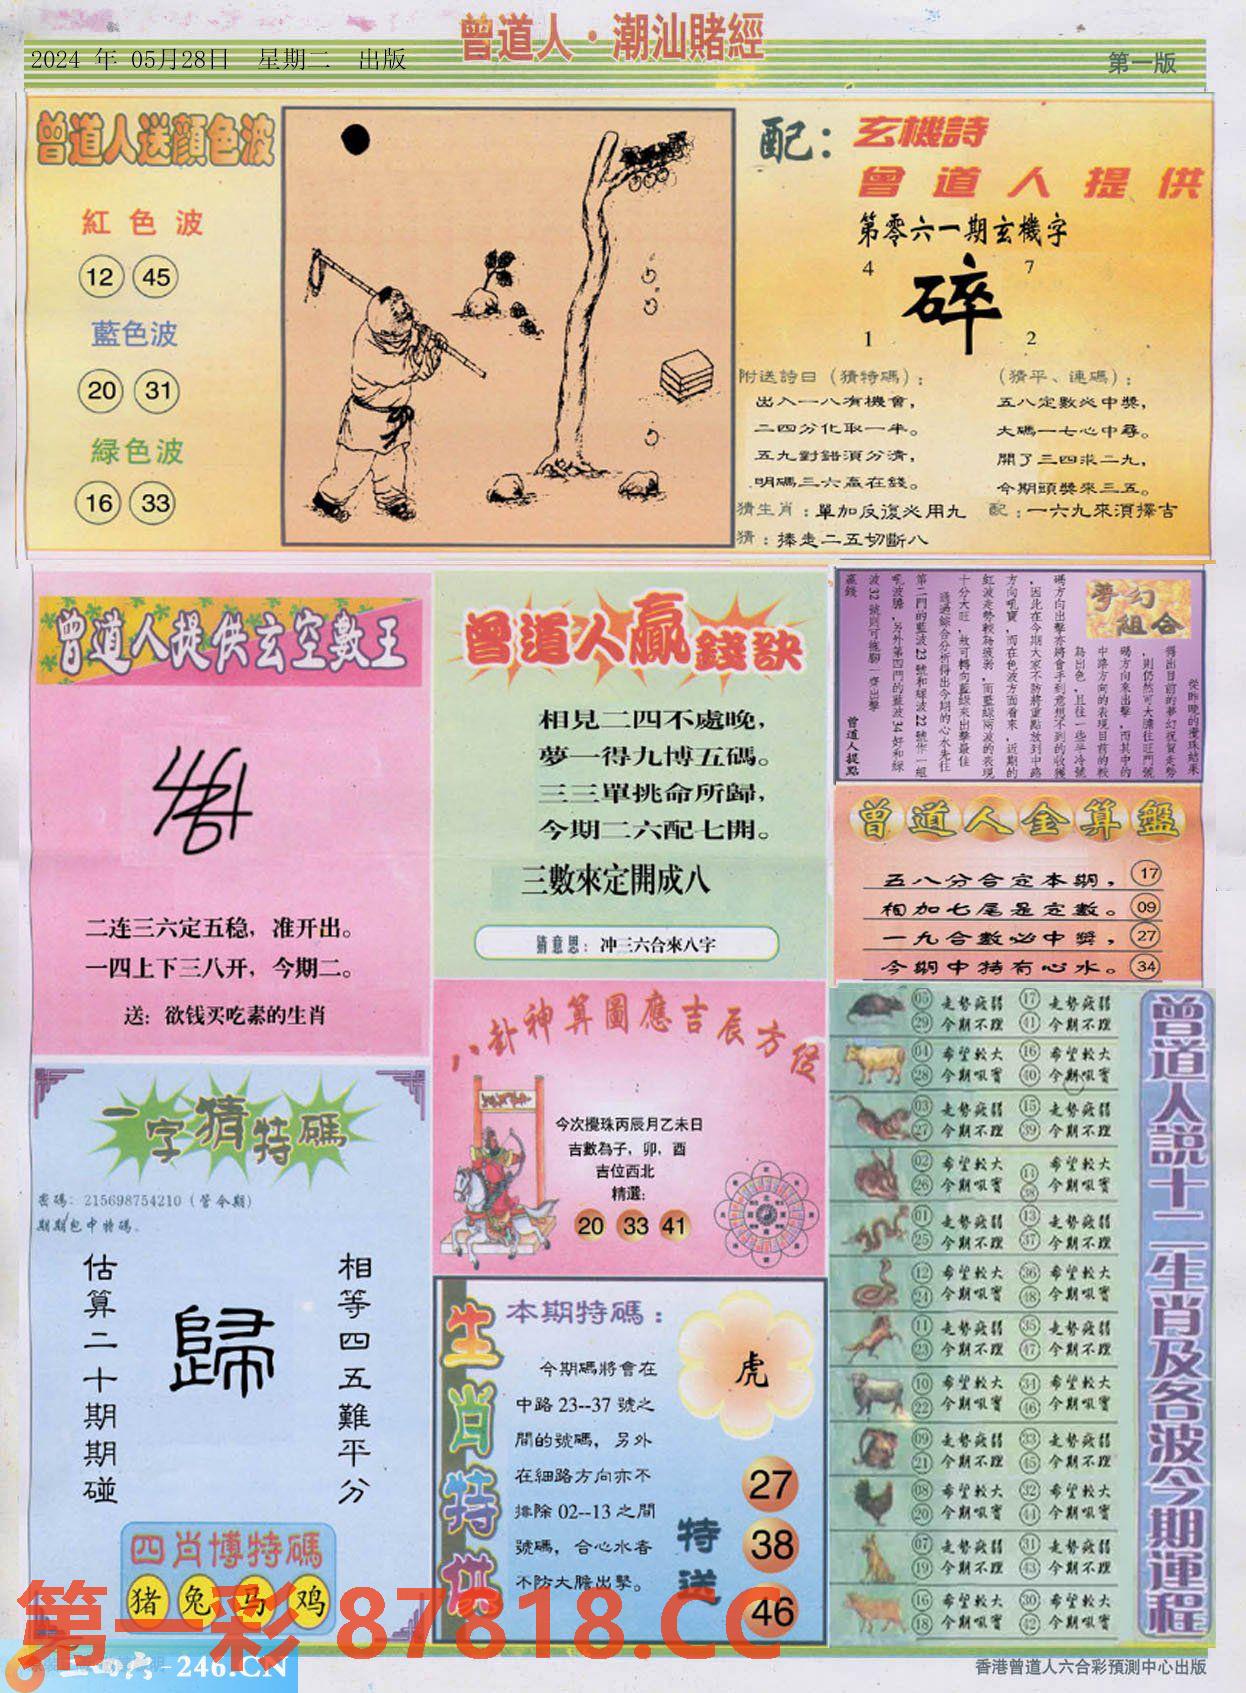 曾道人·潮汕賭經
2024 年 05月28日 星期二 出版
第一版
曾道人送顏色波
紅色波
12 45
藍色波
20 31
緑色波
16 33
配：玄機詩
曾道人提供
第零六一期玄機字
4 7
碎
1 2
附送詩曰（猜特碼）：
出入一八有機會，
二四分化取一半。
五九對錯須分清，
明碼三六贏在錢。
（猜平、連碼）：
五八定數必中獎，
大碼一七心中尋。
開了三四求二九，
今期頭獎來三五。
猜生肖：單加反復必用九
配：一六九來須擇吉
猜：捧走二五切斷八
曾道人提供玄空數王
二连三六定五稳，准开出。
一四上下三八开，今期二。
送：欲钱买吃素的生肖
曾道人贏錢訣
相見二四不處晚，
夢一得九博五碼。
三三單挑命所歸，
今期二六配七開。
三數來定開成八
猜意思：冲三六合來八字
夢幻組合
從昨晚的攪珠結果
得出目前的夢幻祝賀走勢
，則仍然可大膽往旺門號
碼方向來出擊，而其中的
中路方向的表現目前的較
為出色，且往一些半冷號
碼方向出擊亦將會手到意想不到的收獲
，因此在今期大家不防將重點放到中路
方向吼寶，而在色波方面看來，近期的
紅波走勢較為疲弱，而藍綠兩波的表現
十分大旺，故可轉向藍綠來出擊最佳
通過綜合分析得出今期的心水先往
第二門的藍波23號和綠波22號作一組
吼波膽，另外第四門的藍波34好和綠
波32號則可拖腳一齊出擊
贏錢
曾道人提點
曾道人金算盤
五八分合定本期， 17
相加七尾是定數。 09
一九合數必中獎， 27
今期中特有心水。 34
八卦神算圖應吉辰方位
今次攪珠丙辰月乙未日
吉數為子，卯，酉
吉位西北
精選：
20 33 41
一字猜特碼
密碼：215698754210（管今期）
期期包中特碼。
估算二十期期碰
歸
相等四五難平分
四肖博特碼
猪 兔 马 鸡
生肖特供
本期特碼：
今期碼將會在
中路23--37號之
間的號碼，另外
在細路方向亦不
排除02--13之間
號碼，合心水者
不防大膽出擊。
虎
特送
27
38
46
曾道人説十二生肖及各波今期運程
05 走勢疲弱 17 走勢疲弱
29 今期不理 41 今期不理
04 希望較大 16 希望較大
28 今期吼寶 40 今期吼寶
03 走勢疲弱 15 走勢疲弱
27 今期不理 39 今期不理
02 希望較大 14 希望較大
26 今期吼寶 38 今期吼寶
01 走勢疲弱 13 走勢疲弱
25 今期不理 37 今期不理
12 希望較大 36 希望較大
24 今期吼寶 48 今期吼寶
11 走勢疲弱 35 走勢疲弱
23 今期不理 47 今期不理
10 希望較大 34 希望較大
22 今期吼寶 46 今期吼寶
09 走勢疲弱 33 走勢疲弱
21 今期不理 45 今期不理
08 希望較大 32 希望較大
20 今期吼寶 44 今期吼寶
07 走勢疲弱 31 走勢疲弱
19 今期不理 43 今期不理
16 希望較大 30 希望較大
18 今期吼寶 42 今期吼寶
第一彩 87818.CC
二四六-246.CN
香港曾道人六合彩預測中心出版